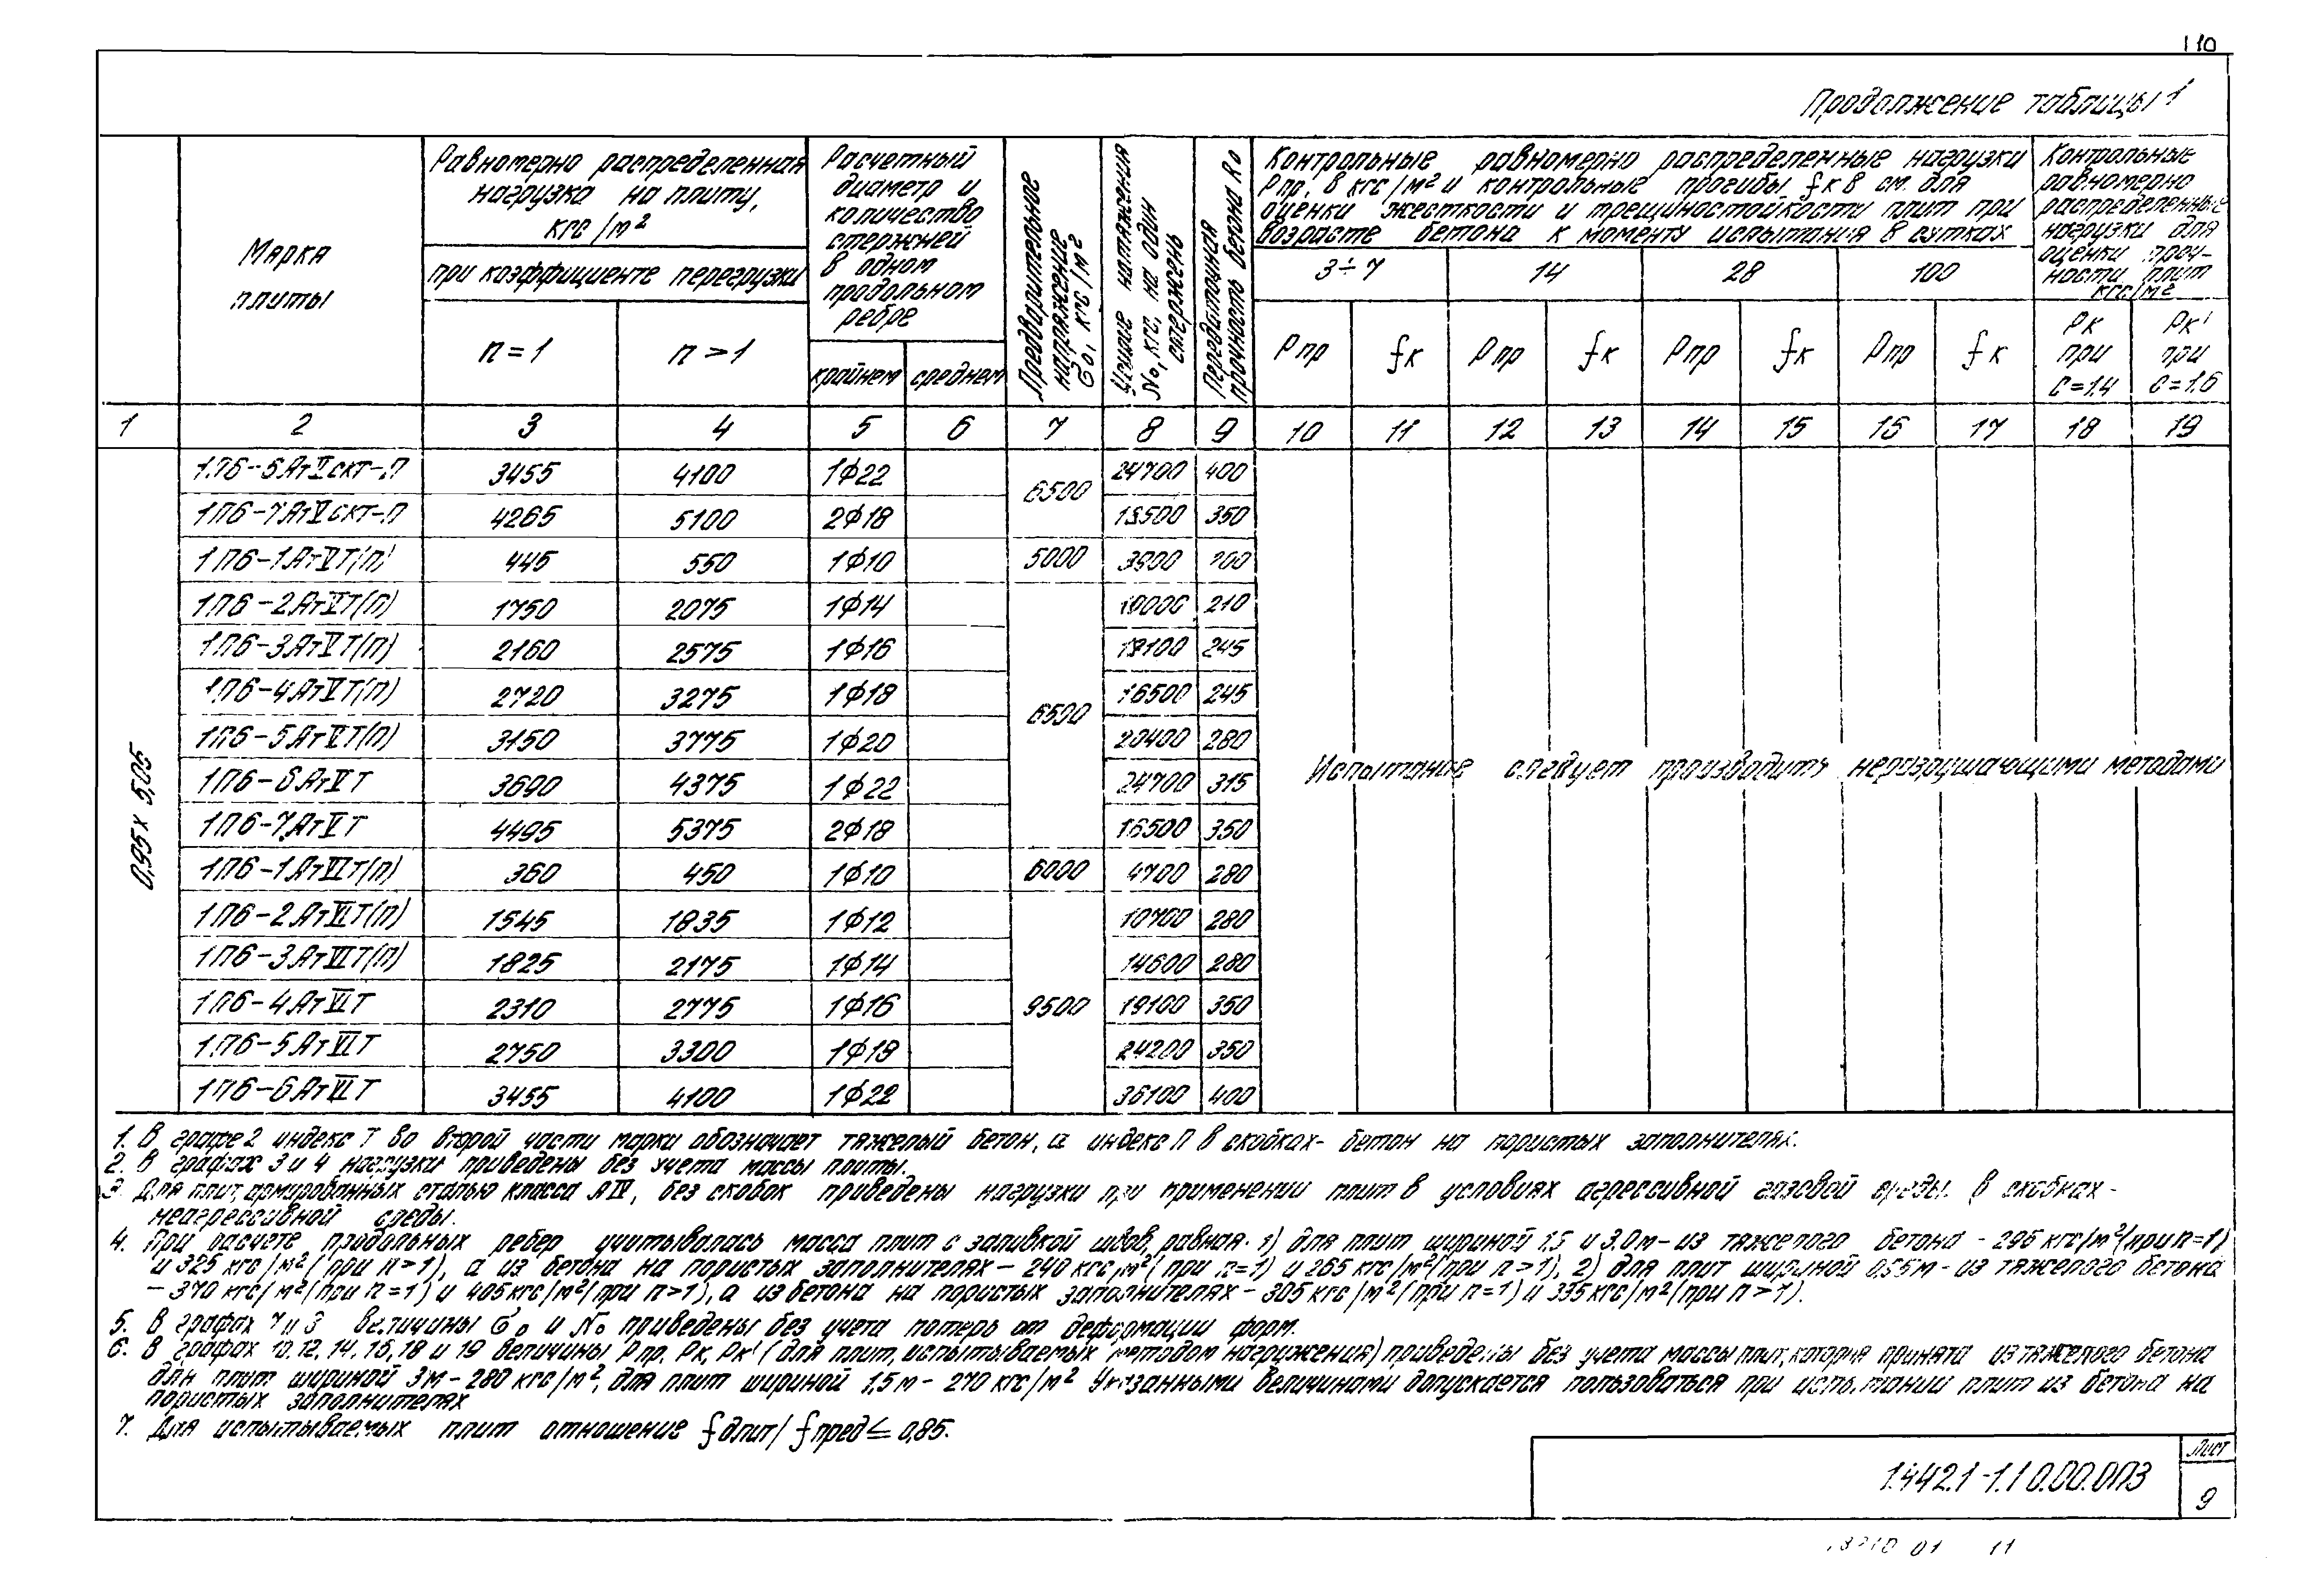 110
Продолжение таблицы 1
Марка плиты
Равномерно распределенная нагрузка на плиту, кгс/м²
при коэффициенте перегрузки
n=1
n>1
Расчетный диаметр и количество стержней в одном продольном ребре
крайнем
среднем
Предварительное напряжение σ0, кгс/м²
Усилие натяжения N0, кгс, на один стержень
Передаточная прочность бетона R0
Контрольные равномерно распределенные нагрузки
Рпр, в кгс/м² и контрольные прогибы fк в см. для
оценки жесткости и трещиностойкости плит при
возрасте бетона к моменту испытания в сутках
3÷7 14 28 100
Рпр fк Рпр fк Рпр fк Рпр fк
Контрольные равномерно распределенные нагрузки для оценки прочности плит кгс/м²
Рк при С=1.4
Рк' при С=1.6
1 2 3 4 5 6 7 8 9 10 11 12 13 14 15 16 17 18 19
0,95 х 5,05
3455 4100 1Ф22 6500 24700 400
1П6-7АтVскт-П 4265 5100 2Ф18 350
1П6-1АтVТ(П) 445 550 1Ф10 5000 3900
1П6-2АтVТ(П) 1750 2075 1Ф14 6500 210
1П6-3АтVТ(П) 2160 2575 1Ф16 19100 245
1П6-4АтVТ(П) 2720 3275 1Ф18 16500 245
1П6-5АтVТ(П) 3150 3775 1Ф20 20400 280
1П6-6АтVТ 3690 4375 1Ф22 24700 315
1П6-7АтVТ 4495 5375 2Ф18 16500 350
1П6-1АтVIТ(П) 360 450 1Ф10 6000 4700 280
1П6-2АтVIТ(П) 1545 1835 1Ф12 9500 10700 280
1П6-3АтVIТ(П) 1825 2175 1Ф14 14600 280
1П6-4АтVIТ 2310 2775 1Ф16 19100 350
1П6-5АтVIТ 2750 3300 1Ф18 24200 350
1П6-6АтVIТ 3455 4100 1Ф22 36100 400
Испытание следует производить неразрушающими методами
1. В графе 2 индекс Т во второй части марки обозначает тяжелый бетон, а индекс П в скобках- бетон на пористых заполнителях.
2. В графах 3 и 4 нагрузки приведены без учета массы плиты.
3. Для плит, армированных сталью класса АIV, без скобок приведены нагрузки при применении плит в условиях агрессивной газовой среды. В скобках -
неагрессивной среды.
4. При расчете продольных ребер учитывалась масса плит с заливкой швов, равная. 1) для плит шириной 1,5 и 3.0м- из тяжелого бетона - 295 кгс/м²(при n=1)
и 325 кгс/м²(при n>1), а из бетона на пористых заполнителях - 240 кгс/м²(при n=1) и 265 кгс/м²(при n>1), 2) для плит шириной - из тяжелого бетона
- 370 кгс/м²(при n=1) и 405кгс/м²(при n>1), а из бетона на пористых заполнителях - 305кгс/м²(при n=1) и 335кгс/м²(при n>1).
5. В графах 7 и 8 величины σ0 и N0 приведены без учета потерь от деформации форм.
6. В графах 10.12.14.16,18 и 19 величины Рпр. Рк, Рк' (для плит, испытываемых методом нагружения) приведены без учета массы плит, которая принята из тяжелого бетона
для плит шириной 3м - 280 кгс/м², для плит шириной 1,5м - 270 кгс/м² Указанными величинами допускается пользоваться при испытании плит из бетона на
пористых заполнителях
7. Для испытываемых плит отношение fдлит/fпред ≤ 0,85.
1.442.1-1.1 0.00.0ПЗ
Лист
9
01 11